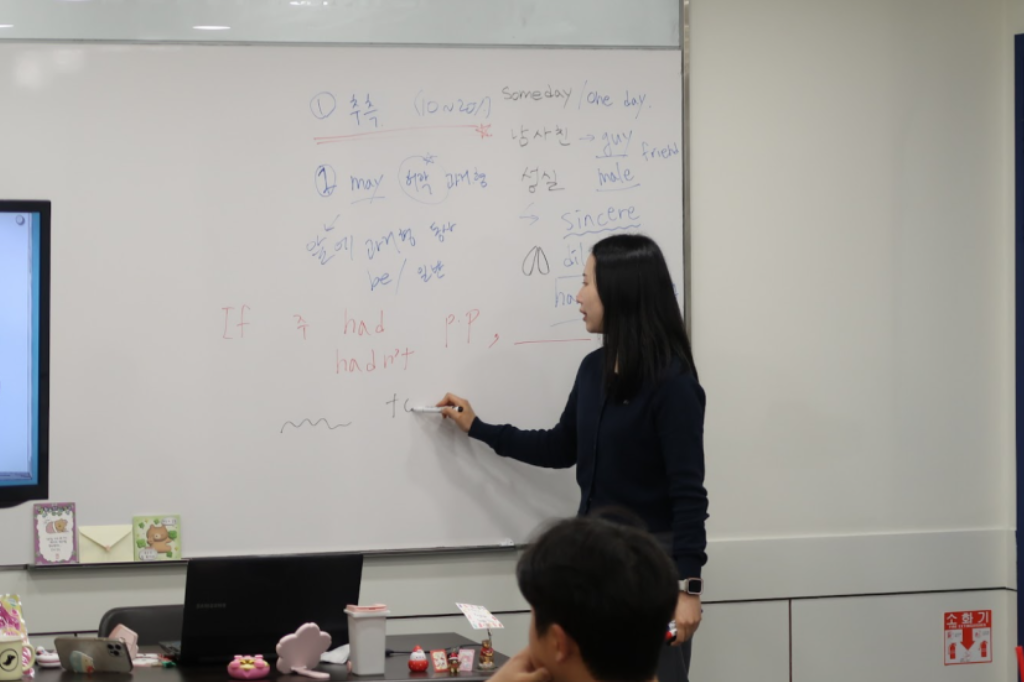 ① 추측 (10~20%)
② may 허락 과거형
앞에 과거형 동사
be / 일반
Someday / One day.
남사친 → guy friend
성실 male
→ sincere
If 주 had p.p,
hadn't
소화기